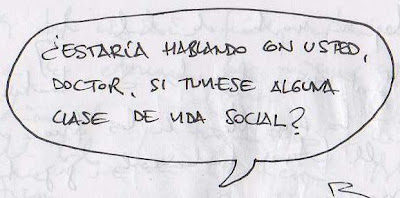 ¿ESTARÍA HABLANDO CON USTED,
DOCTOR, SI TUVIESE ALGUNA
CLASE DE VIDA SOCIAL?
R